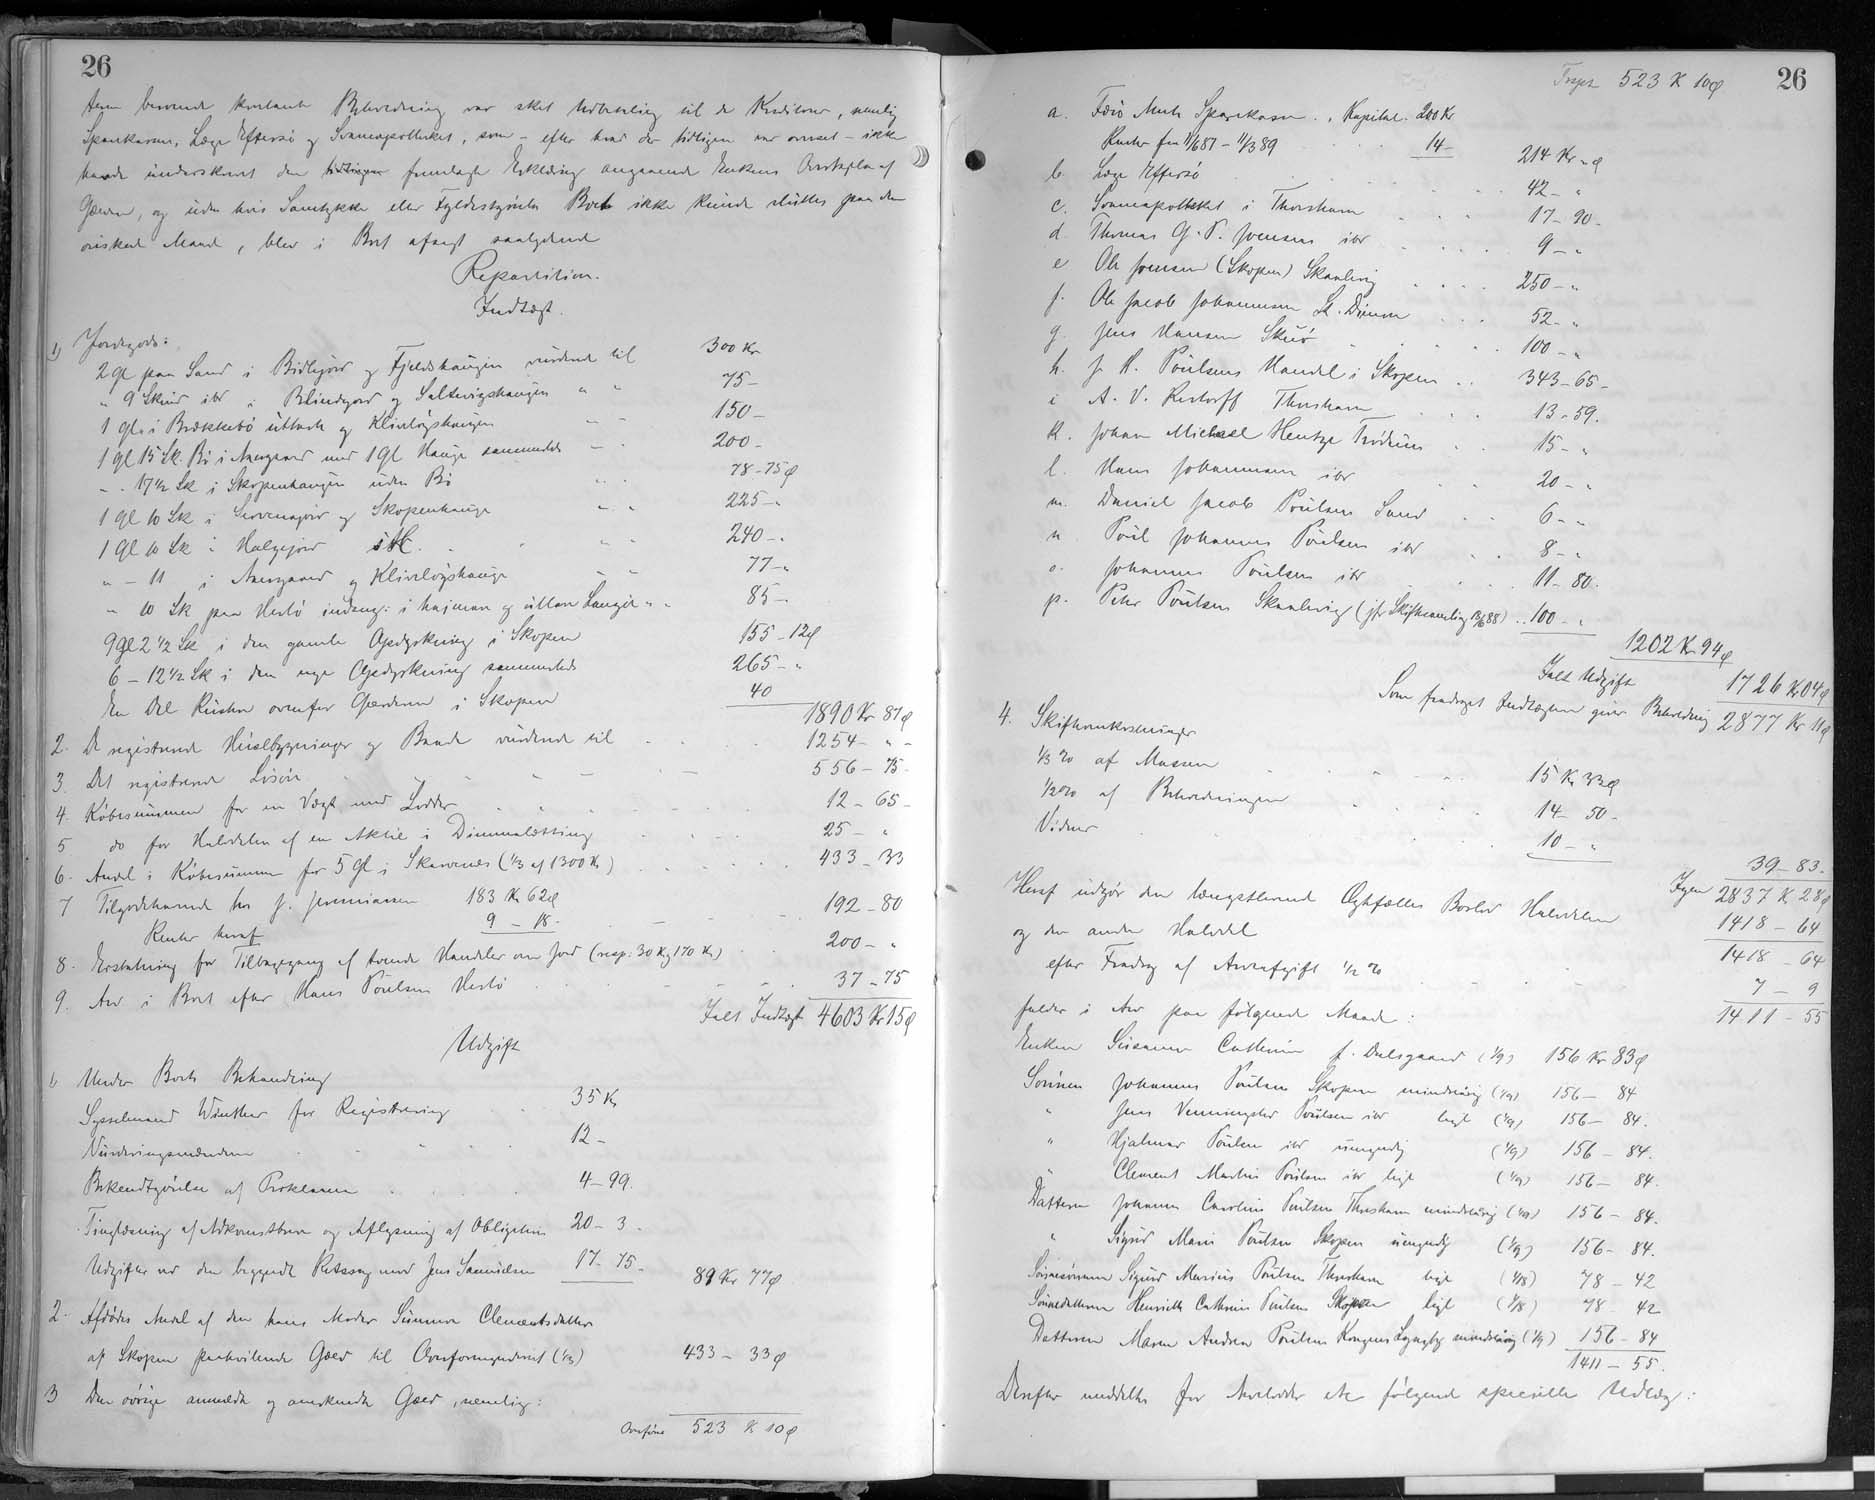 26
deres beroende kontante Beholdning var sket Udbetaling til de Kreditorer, nemlig
Sparekassen, Læge Effersö og Svaneapotheket, som – efter hvad der tidligere var oversat – ikke
havde underskrevet den tidligere fremlagte Erklæring angaaende Enkens Overtagelse af
Gælden, og uden hvis Samtykke eller Fyldestgörelse Boet ikke kunde sluttes paa den
önskede Maade, blev i Boet afsagt saalydende
Repartition.
Indtægt.
1) Jordegods:
2 gl paa Sand i Bødlejord og Fjeldshaugen vurderet til 300 Kr
" 9 Skind ibr i Blindgard og Saltvigshaugen " " 75 –
1 gl. i Brækkebö udtank og Klivlöjshaugen " " 150 –
1 gl 15 Sk. Bö i Nuregaard med 1 gl Hauge sammesteds – " 200 –
– . 17 1/2 Sk i Skopenhaugen uden Bö " " 78 – 75 ø
1 gl 10 Sk i Servensjord og Skopenhauge " " 225 – "
1 gl 10 Sk i Halgejord " " 240 – "
" – 11 i Nuregaard og Klivlöjshauge – " 77 – "
" 10 Sk paa Hestö 85 – "
9 gl 2 1/2 Sk i den gamle Opdyrkning i Skopen 155 – 12 ø
6 – 12 1/2 Sk i den nye Opdyrkning sammesteds 265 – "
En Del Rusken ovenfor Gærderne i Skopen 40
1890 Kr 87 ø
2. De registrerede Huusbygninger og Baade vurderet til 1254 – " –
3. Det registrerede Lösöre 556 – 75 –
4. Köbesummen for en Vægt med Lodder 12 – 65 –
5 do for Halvdelen af en Aktie i Dimmalætting 25 – "
6. Andel i Köbesummen for 5 gl i Skarvenes (1/3 af 1300 Kr) 433 – 33
7 Tilgodehavende hos J. Jeremiassen 183 Kr 62 ø
Renter heraf 9 – 18 – 192 – 80
8. Erstatning for Tilbagegang af tvende Handler om Jord (resp: 30 Kr og 170 Kr) 200 – "
9. Arv i Boet efter Hans Poulsen Hestö 37 – 75
Ialt Indtægt 4603 Kr 15 ø
Udgift
1 Under Boets Behandling
Sysselmand Winther for Registrering 35 Kr
Vurderingsmændene 12 –
Bekendtgörelse af Proklama 4 – 99.
Tinglæsning af Adkomstbreve og Aflysning af Obligation 20 – 3 –
Udgifter ved den byggede Retssag mod Jens Samuelsen 17 – 75 – 89 Kr 77 ø
2. Afdödes Andel af den hans Moder Sunneva Clementsdatter
af Skopen paahvilende Gæld til Overformynderiet (1/3) 433 – 33 ø
3 Den övrige anmeldte og anerkendte Gæld, nemlig:
Overföres 523 K 10 ø
Trspt 523 K 10 ø 26
a. Færö Amts Sparekasse. , Kapital 200 Kr
Renter fra 11/6 87 – 11/3 89 14 – 214 Kr " ø
b. Læge Effersö 42 – "
c. Svaneapotheket i Thorshavn 17 – 90 –
d. Thomas G. P. Joensen ibr 9 – "
e Ole Joensen (Skopen) Skaalevig 250 – "
f. Ole Jacob Johannesen St. Dimon 52 – "
g. Jens Hansen Skuö 100 – "
h. J. H. Poulsens Handel i Skopen 343 – 65 –
i A. V. Restorff Thorshavn 13 – 59.
k. Johan Michael Hentze Trödum 15 – "
l. Hans Johannesen ibr 20 – "
m. Daniel Jacob Poulsen Sand 6 – "
n Poul Johannes Poulsen ibr 8 – "
o. Johannes Poulsen ibr 11 – 80.
p. Peter Poulsen Skaalevig (jfr Skiftesamling 13/6 88) 100 – "
1202 Kr 94 ø
Ialt Udgift 1726 Kr 04 ø
Som fradraget Indtægten giver Beholdning 2877 Kr 11 ø
4. Skifteomkostninger
1/3 % af Massen 15 Kr 33 ø
1/2 % af Beholdningen 14 – 50 –
Vidner 10 – "
39 – 83.
Igen 2837 K 28 ø
Heraf udgör den længstlevende Ægtefælles Boslod Halvdelen 1418 – 64
og den anden Halvdel 1418 – 64
efter Fradrag af Arveafgift 1/2 % 7 – 9
falder i Arv paa fölgende Maade: 1411 – 55
Enken Susanne Cathrine f. Dalsgaard (1/9) 156 Kr 83 ø
Sönnen Johannes Poulsen Skopen mindreaarig (1/9) 156 – 84
" Jens Venningsted Poulsen ibr ligl (1/9) 156 – 84.
" Hjalmar Poulsen ibr umyndig (1/9) 156 – 84.
" Clement Martin Poulsen ibr ligl (1/9) 156 – 84.
Datteren Johanne Caroline Poulsen Thorshavn mindreaarig (1/9) 156 – 84.
" Sigrid Marie Poulsen Skopen umyndig (1/9) 156 – 84.
Sönnesönnen Sigurd Marius Poulsen Thorshavn ligl (1/18) 78 – 42
Sönnedatteren Henriette Cathrine Poulsen Skopen ligl (1/18) 78 – 42
Datteren Maren Andrea Poulsen Kongens Lyngby mindreaarig (1/9) 156 – 84
1411 – 55.
Derefter meddeltes for Arvelodder etc fölgende specielle Udlæg: